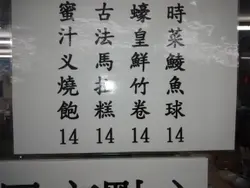 時菜鯪魚球14
蠔皇鮮竹卷14
古法馬拉糕14
蜜汁义燒飽14